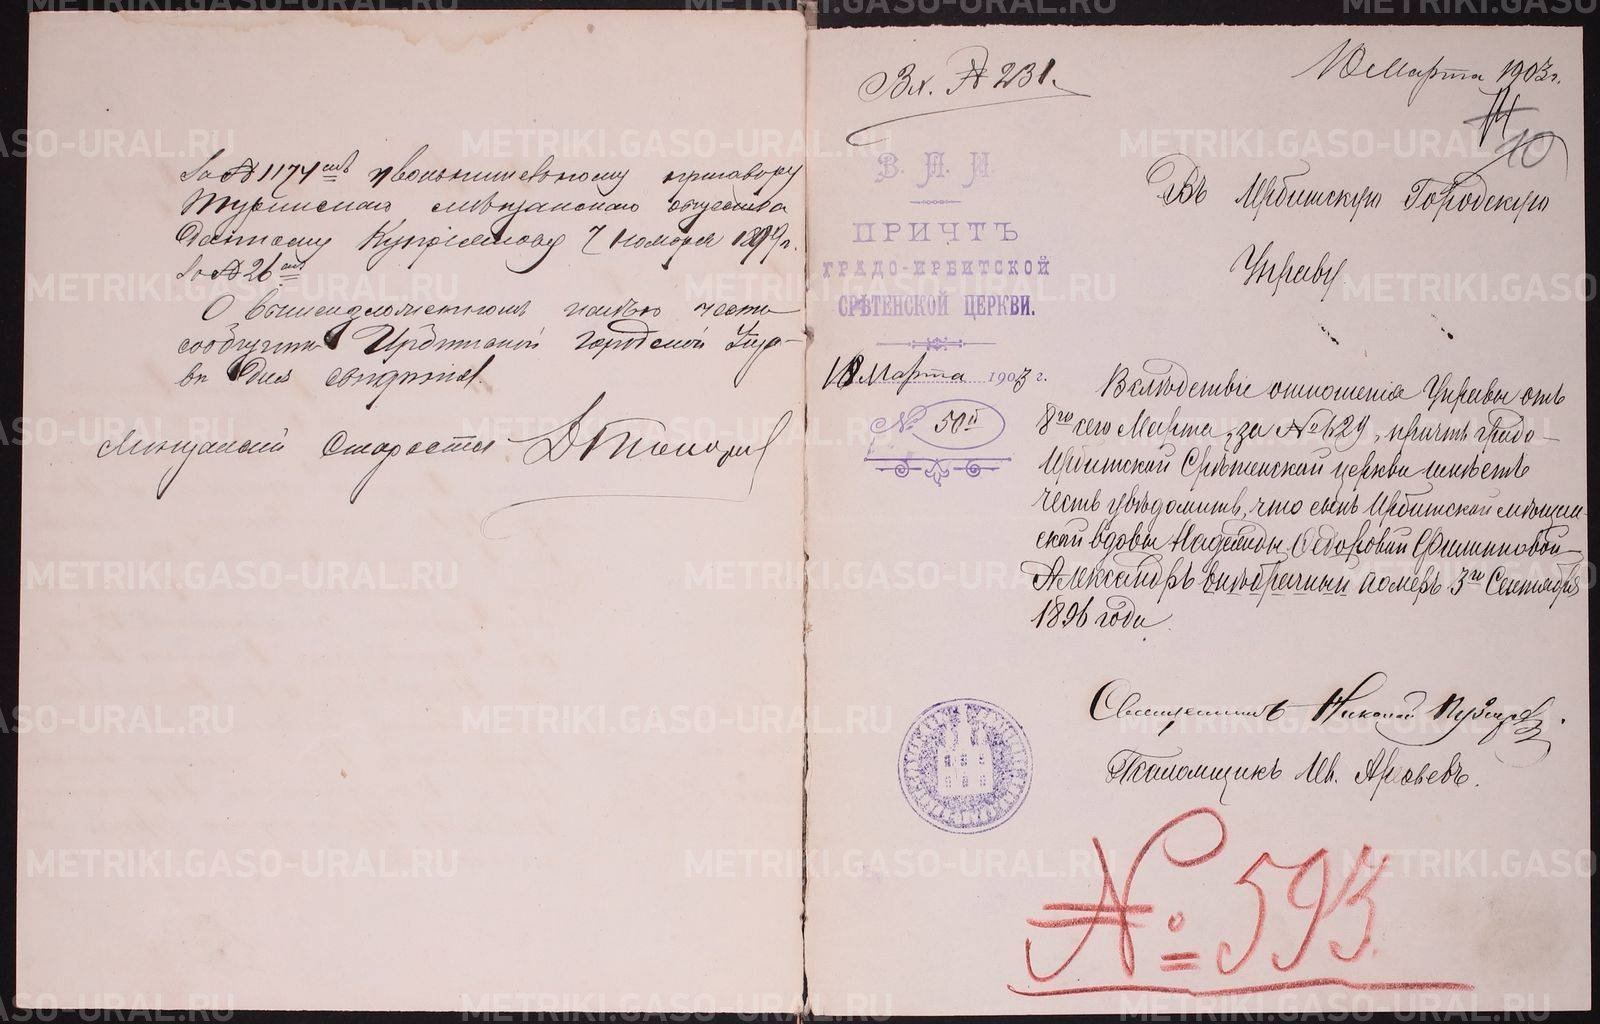 за № 1174 мъ увольнительному приговору
Туринскаго мѣщанскаго общества
данному 7 ноября 1899 г.
за № 26 мъ
О вышеизложенномъ имѣю честь
сообщить Ирбитской Городской Упра-
вѣ для свѣдѣнія.
Мѣщанскій Староста
Вх. № 231.
10 Марта 1903 г.
10
В. П. И.
ПРИЧТЪ
ГРАДО-ИРБИТСКОЙ
СРѢТЕНСКОЙ ЦЕРКВИ.
10 Марта 1903 г.
№ 50й
Въ Ирбитскую Городскую
Управу.
Вслѣдствіе отношенія Управы отъ
8го сего Марта, за № 629, причтъ градо-
Ирбитской Срѣтенской церкви имѣетъ
честь увѣдомить, что сынъ Ирбитской мѣщан-
ской вдовы Надежды Ѳедоровой
Александръ внѣбрачный померъ 3го Сентября
1896 года.
Священникъ Николай
Псаломщикъ Ив.
№ 593.
METRIKI.GASO-URAL.RU